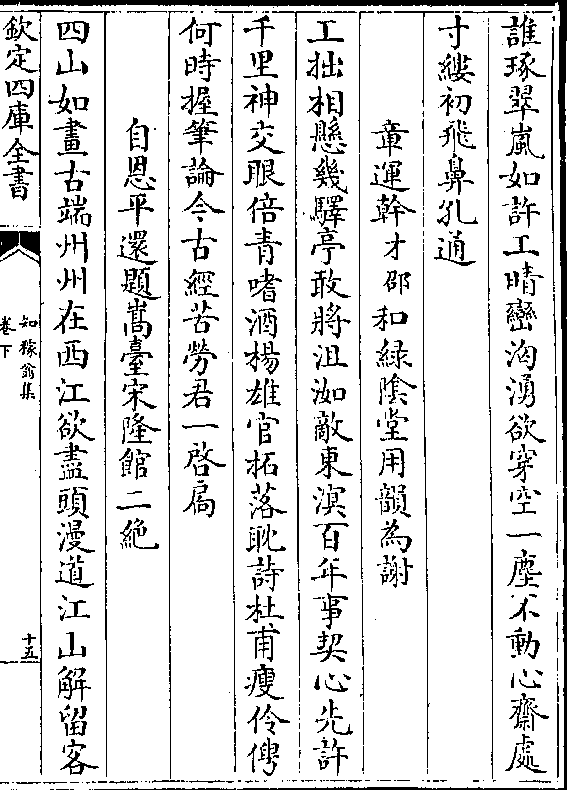 誰琢翠嵐如許工晴巒洶湧欲穿空一塵不動心齋處
寸縷初飛鼻孔通
章運幹才邵和緑陰堂用韻為謝
工拙相懸幾驛亭敢將沮洳敵東溟百年事契心先許
千里神交眼倍青嗜酒楊雄官柘落耽詩杜甫瘦伶俜
何時握筆論今古經苦勞君一啓扃
自恩平還題嵩臺宋隆館二絶
四山如畫古端州州在西江欲盡頭漫道江山解留客
欽定四庫全書
知稼翁集
卷下
十五